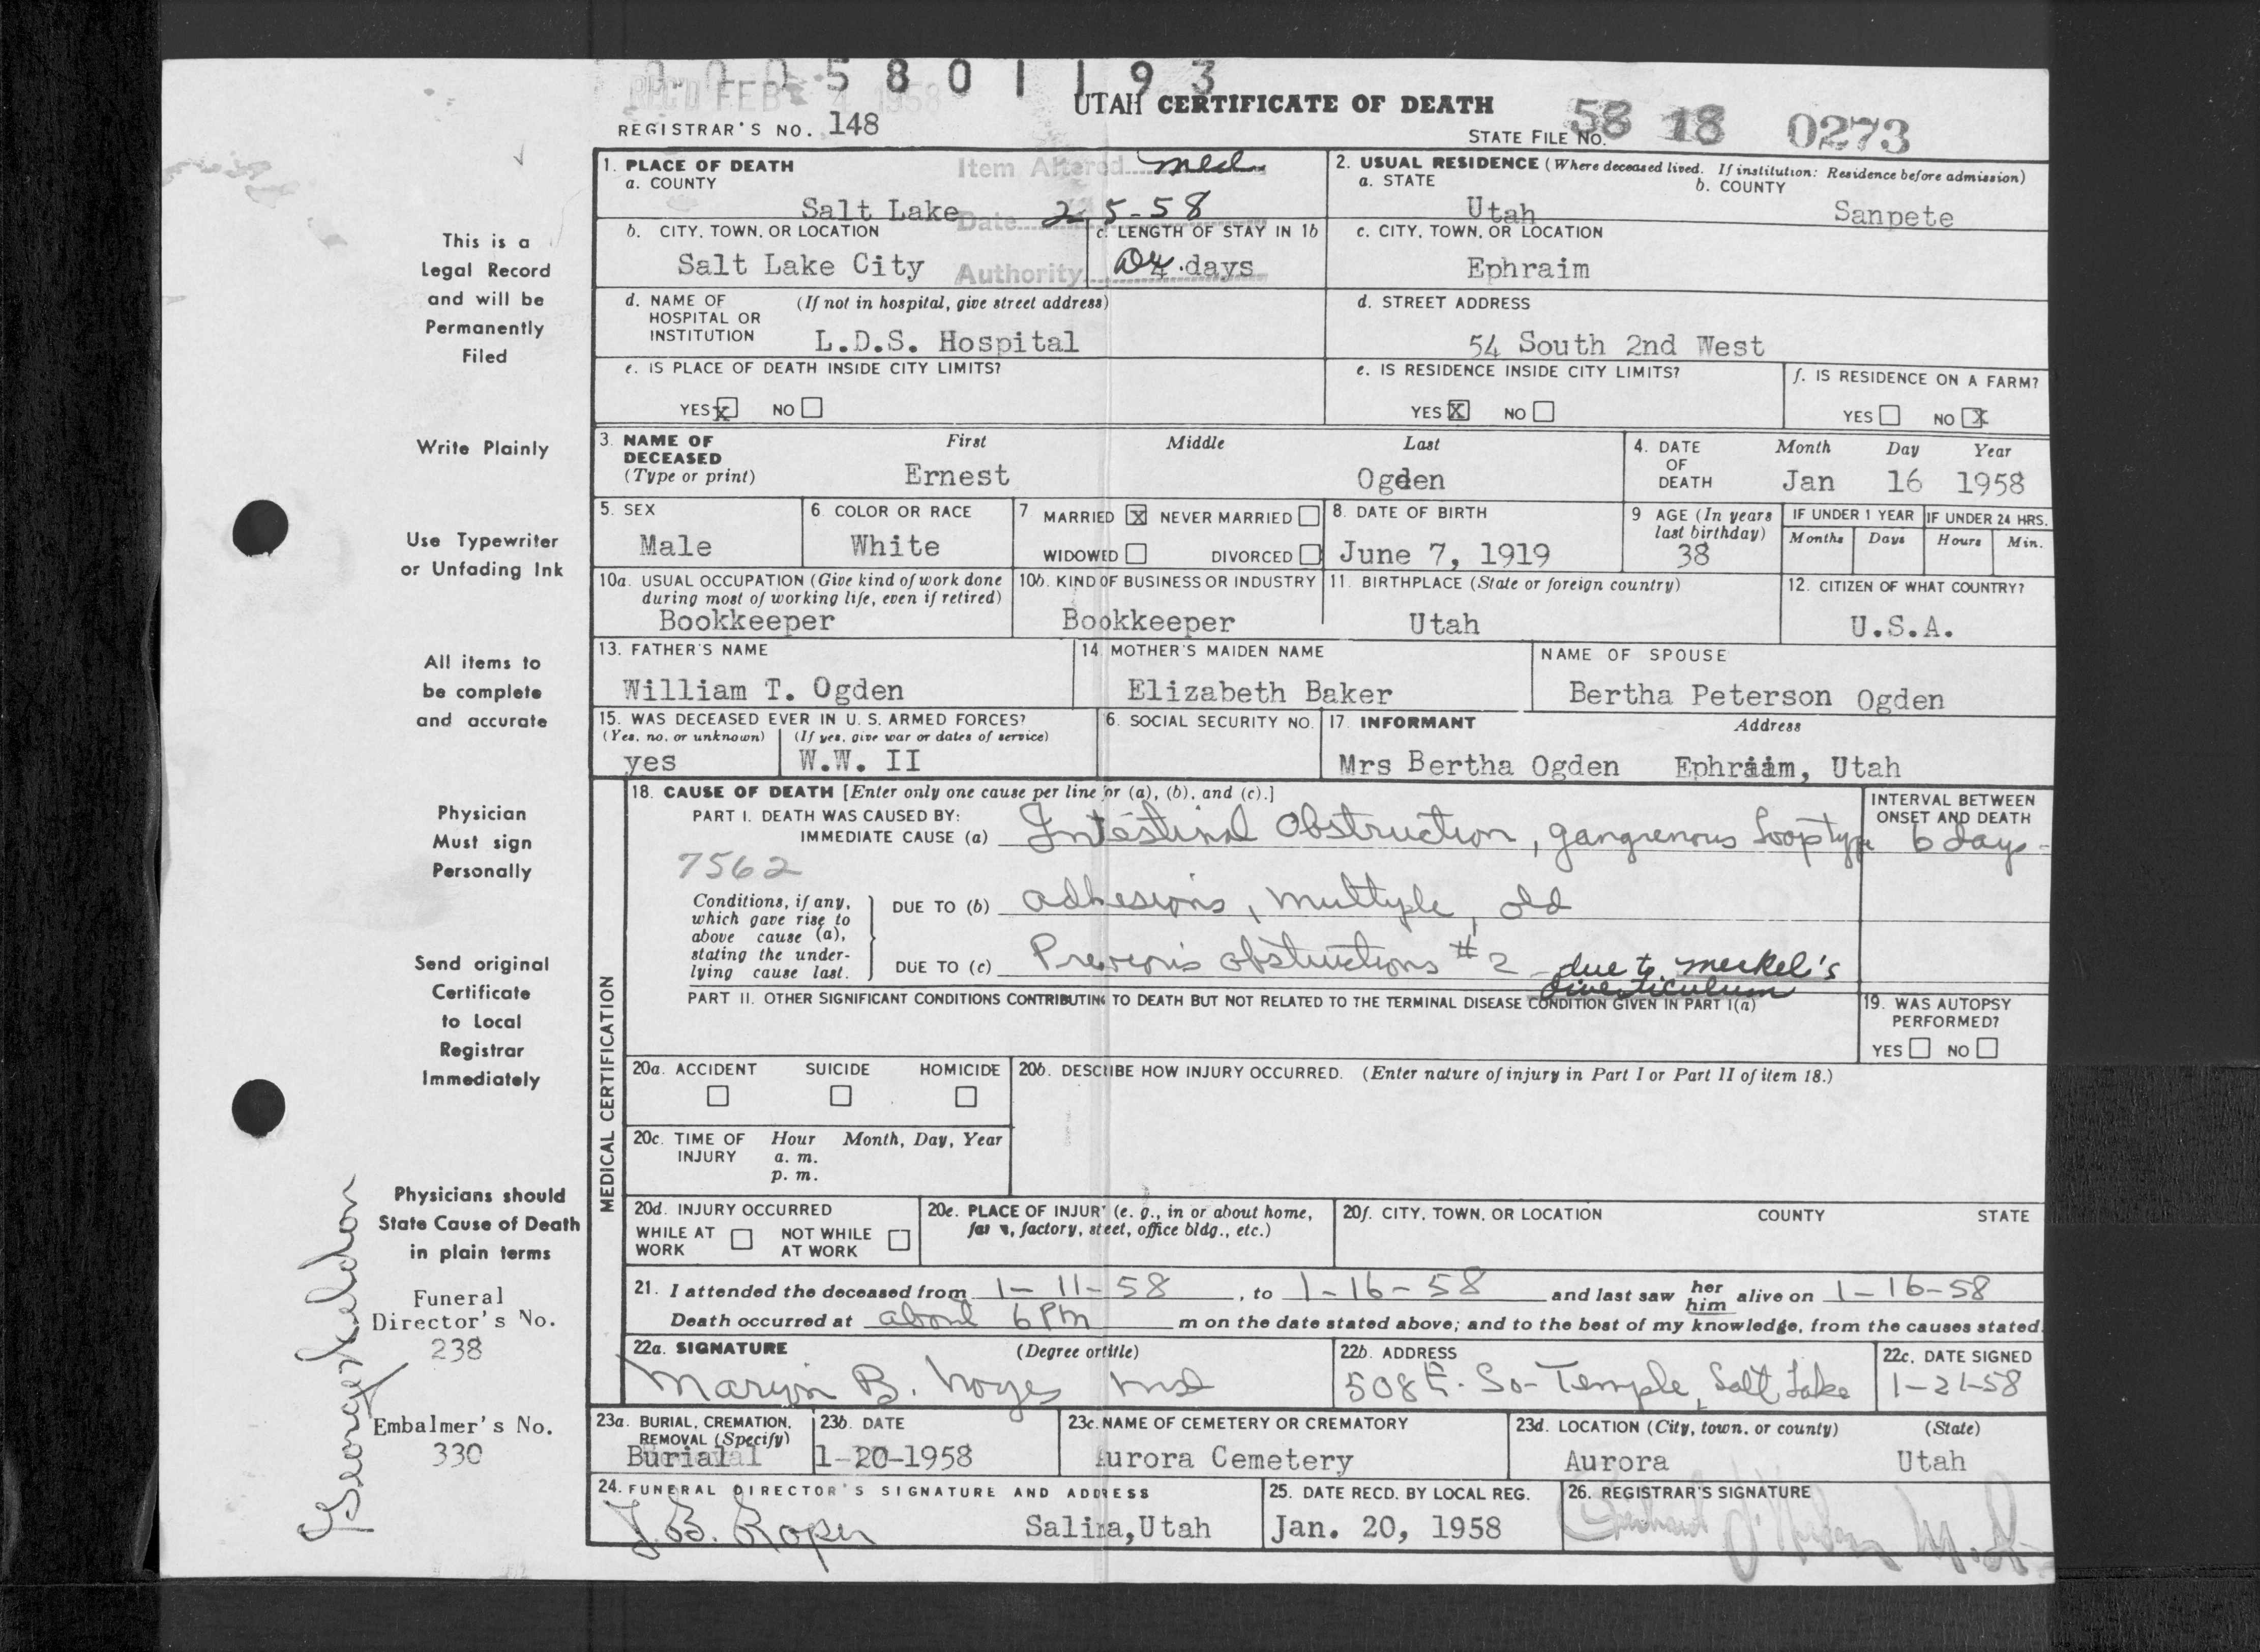 0005801193
REC'D FEB 4 1958
UTAH CERTIFICATE OF DEATH
REGISTRAR'S NO. 148
STATE FILE NO. 58 18 0273
1. PLACE OF DEATH
a. COUNTY
Salt Lake
Item Altered med
Date 2-5-58
Authority Dr.
2. USUAL RESIDENCE (Where deceased lived. If institution: Residence before admission)
a. STATE
Utah
b. COUNTY
Sanpete
b. CITY, TOWN, OR LOCATION
Salt Lake City
c. LENGTH OF STAY IN 1b
4 days
c. CITY, TOWN, OR LOCATION
Ephraim
d. NAME OF HOSPITAL OR INSTITUTION (If not in hospital, give street address)
L.D.S. Hospital
d. STREET ADDRESS
54 South 2nd West
e. IS PLACE OF DEATH INSIDE CITY LIMITS?
YES X NO
e. IS RESIDENCE INSIDE CITY LIMITS?
YES X NO
f. IS RESIDENCE ON A FARM?
YES NO X
3. NAME OF DECEASED (Type or print)
First Middle Last
Ernest Ogden
4. DATE OF DEATH
Month Day Year
Jan 16 1958
5. SEX
Male
6. COLOR OR RACE
White
7 MARRIED X NEVER MARRIED
WIDOWED DIVORCED
8. DATE OF BIRTH
June 7, 1919
9 AGE (In years last birthday)
38
IF UNDER 1 YEAR
Months Days
IF UNDER 24 HRS.
Hours Min.
10a. USUAL OCCUPATION (Give kind of work done during most of working life, even if retired)
Bookkeeper
10b. KIND OF BUSINESS OR INDUSTRY
Bookkeeper
11. BIRTHPLACE (State or foreign country)
Utah
12. CITIZEN OF WHAT COUNTRY?
U.S.A.
13. FATHER'S NAME
William T. Ogden
14. MOTHER'S MAIDEN NAME
Elizabeth Baker
NAME OF SPOUSE
Bertha Peterson Ogden
15. WAS DECEASED EVER IN U. S. ARMED FORCES?
(Yes, no, or unknown) (If yes, give war or dates of service)
yes W.W. II
6. SOCIAL SECURITY NO.
17. INFORMANT Address
Mrs Bertha Ogden Ephraim, Utah
MEDICAL CERTIFICATION
18. CAUSE OF DEATH [Enter only one cause per line for (a), (b), and (c).]
INTERVAL BETWEEN ONSET AND DEATH
PART I. DEATH WAS CAUSED BY:
IMMEDIATE CAUSE (a) Intestinal Obstruction, gangrenous loop type 6 days
7562
Conditions, if any, which gave rise to above cause (a), stating the underlying cause last.
DUE TO (b) adhesions, multiple, old
DUE TO (c) Previous obstructions #2 - due to meckel's diverticulum
PART II. OTHER SIGNIFICANT CONDITIONS CONTRIBUTING TO DEATH BUT NOT RELATED TO THE TERMINAL DISEASE CONDITION GIVEN IN PART I(a)
19. WAS AUTOPSY PERFORMED?
YES NO
20a. ACCIDENT SUICIDE HOMICIDE
20b. DESCRIBE HOW INJURY OCCURRED. (Enter nature of injury in Part I or Part II of item 18.)
20c. TIME OF INJURY
Hour Month, Day, Year
a. m.
p. m.
20d. INJURY OCCURRED
WHILE AT WORK NOT WHILE AT WORK
20e. PLACE OF INJURY (e. g., in or about home, farm, factory, street, office bldg., etc.)
20f. CITY, TOWN, OR LOCATION COUNTY STATE
21. I attended the deceased from 1-11-58, to 1-16-58 and last saw her him alive on 1-16-58
Death occurred at about 6 PM m on the date stated above; and to the best of my knowledge, from the causes stated.
22a. SIGNATURE (Degree or title)
Marvin B. Noyes md
22b. ADDRESS
508 E. So-Temple, Salt Lake
22c. DATE SIGNED
1-21-58
23a. BURIAL, CREMATION, REMOVAL (Specify)
Burial
23b. DATE
1-20-1958
23c. NAME OF CEMETERY OR CREMATORY
Aurora Cemetery
23d. LOCATION (City, town, or county) (State)
Aurora Utah
24. FUNERAL DIRECTOR'S SIGNATURE AND ADDRESS
J. B. Roper Salina, Utah
25. DATE RECD. BY LOCAL REG.
Jan. 20, 1958
26. REGISTRAR'S SIGNATURE
This is a
Legal Record
and will be
Permanently
Filed
Write Plainly
Use Typewriter
or Unfading Ink
All items to
be complete
and accurate
Physician
Must sign
Personally
Send original
Certificate
to Local
Registrar
Immediately
Physicians should
State Cause of Death
in plain terms
Funeral
Director's No.
238
Embalmer's No.
330